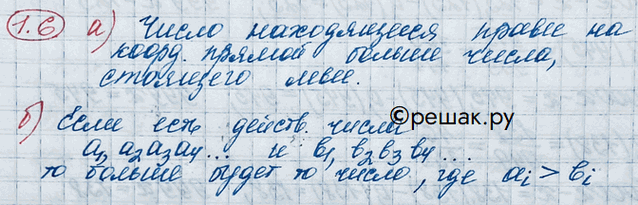 1.6 а) Число находящееся правее на
коорд. прямой больше числа,
стоящего левее.
б) Если есть действ. числа
©решак.ру
a₁, a₂a₃a₄... и b₁, b₂b₃b₄...
то больше будет то число, где aᵢ > bᵢ